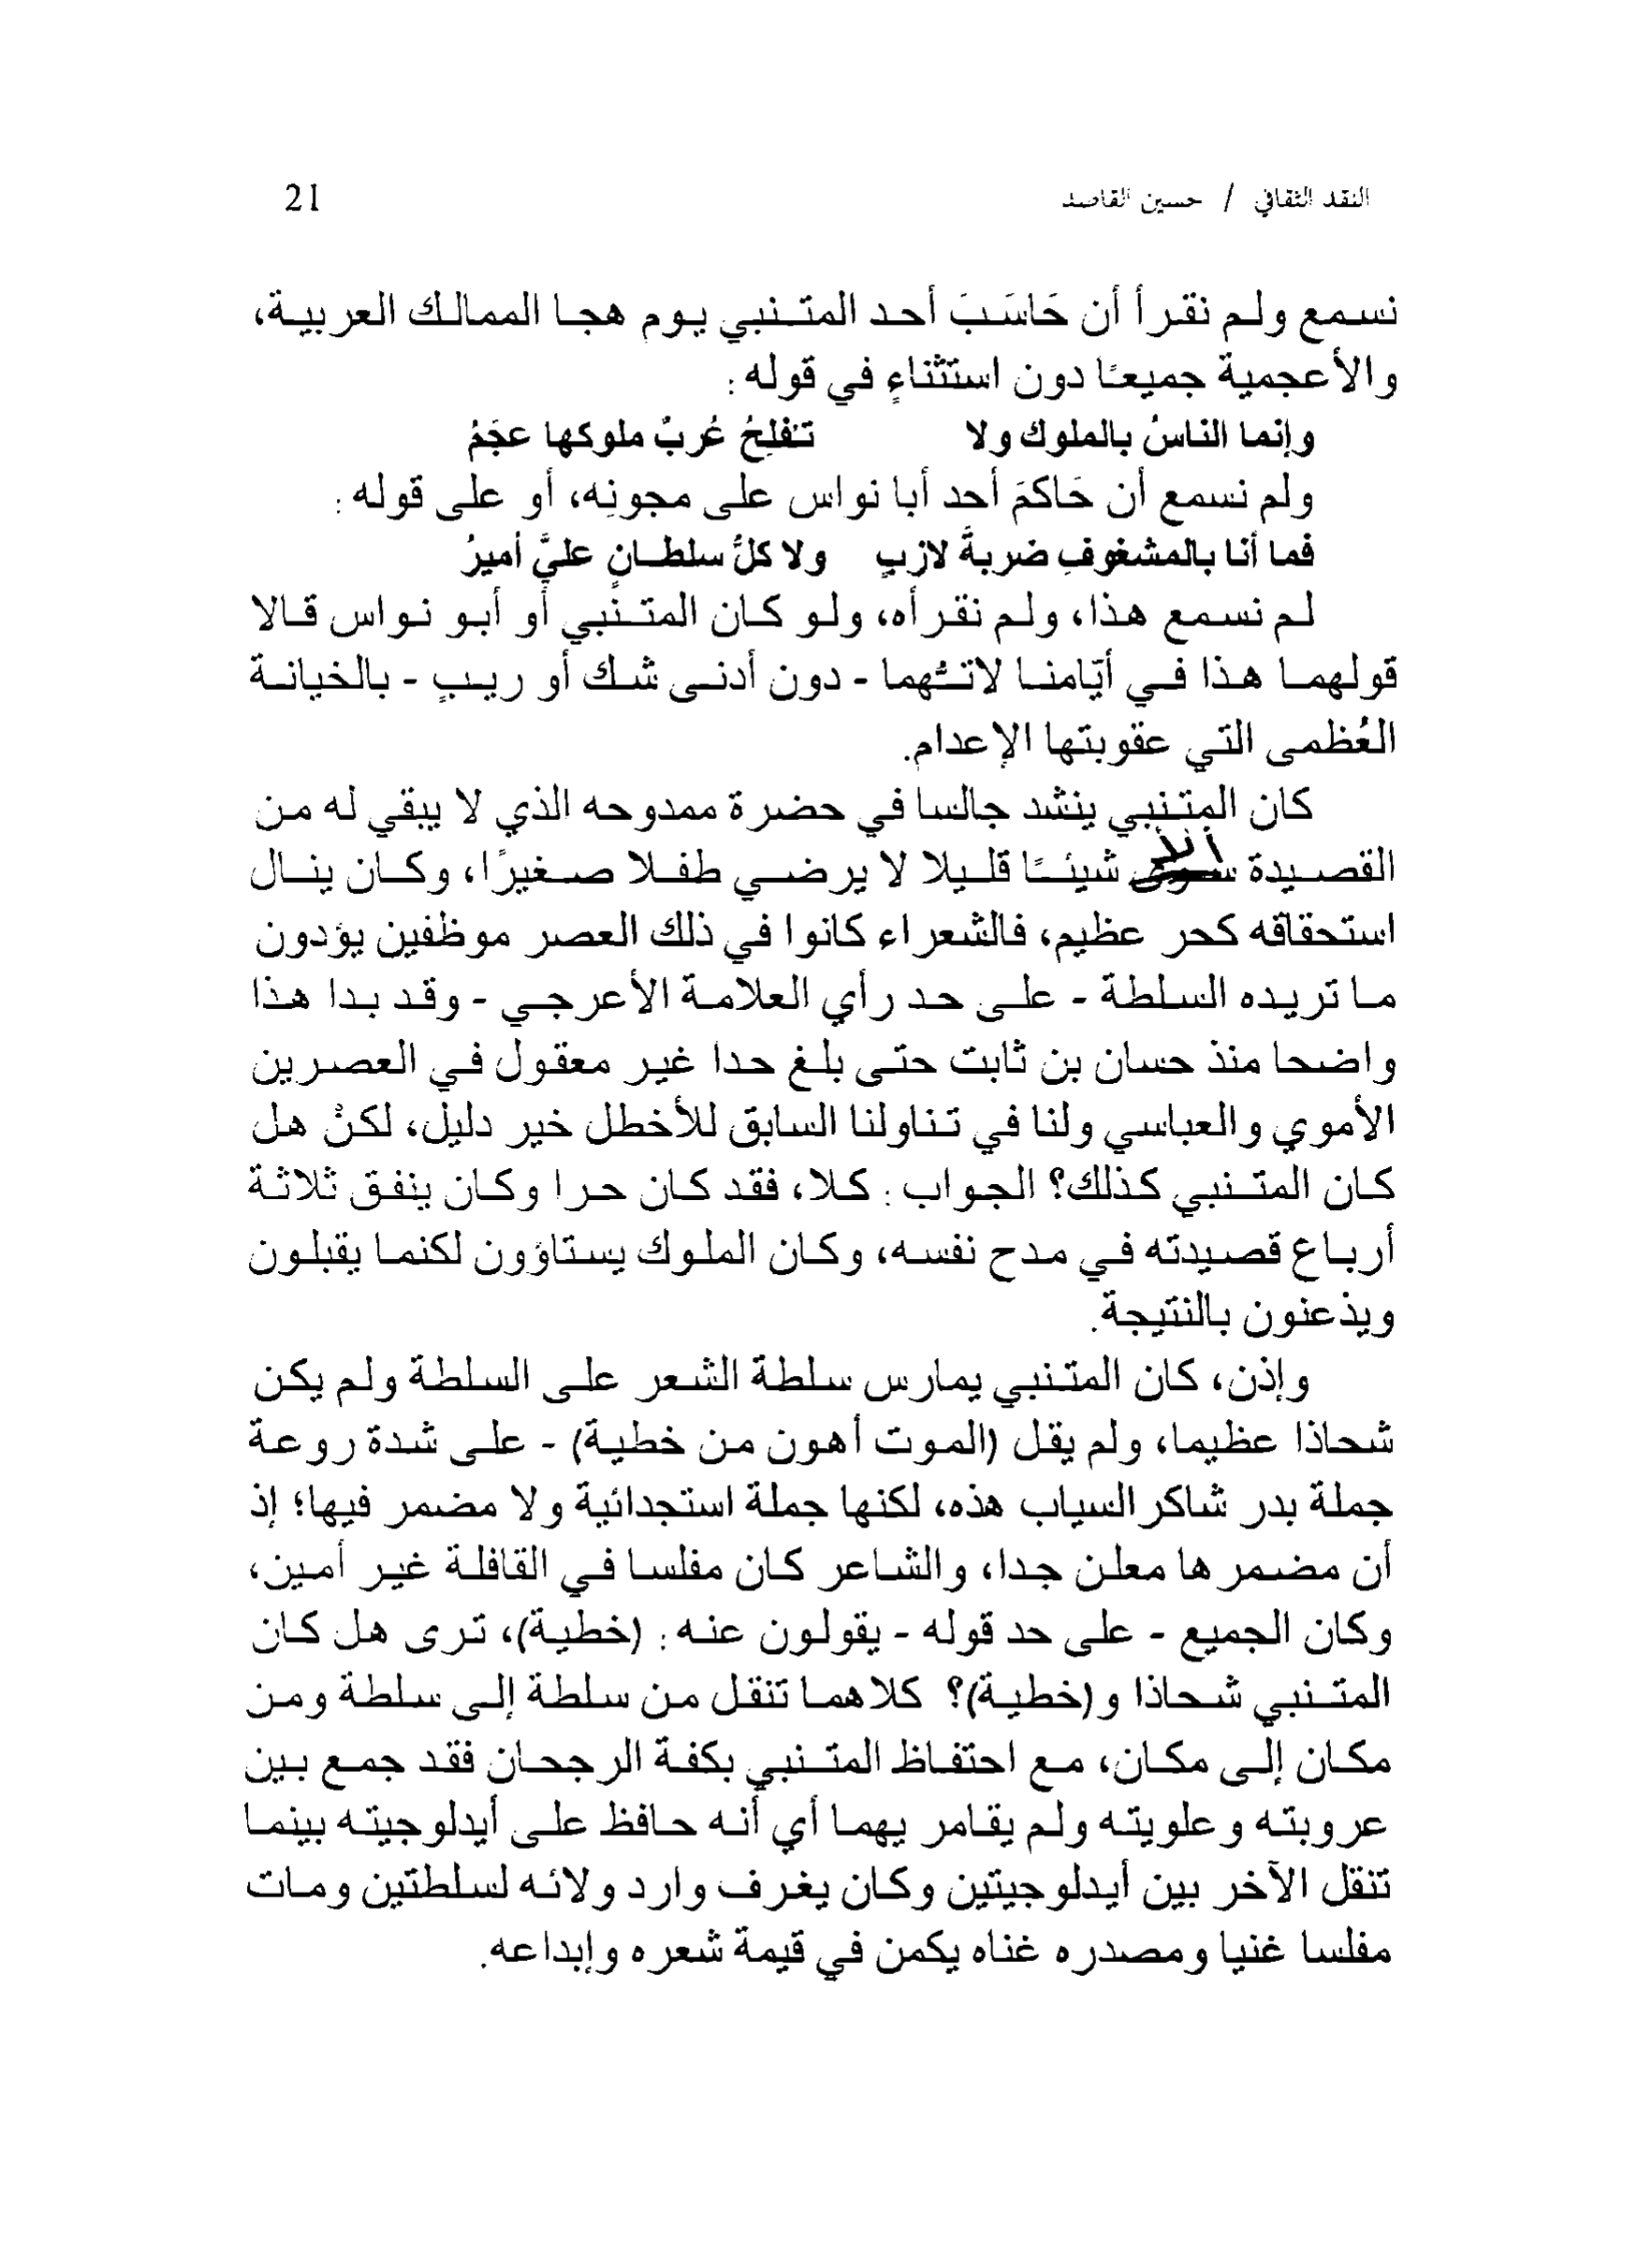 النقد الثقافي / حسين القاصد 21
نسمع ولم نقرأ أن حَاسَبَ أحد المتنبي يوم هجا الممالك العربية،
والأعجمية جميعًا دون استثناءٍ في قوله:
وإنما الناسُ بالملوك ولا تفلحُ عُربٌ ملوكها عجَمُ
ولم نسمع أن حَاكمَ أحد أبا نواس على مجونِه، أو على قوله:
فما أنا بالمشغوفِ ضربةَ لازبٍ ولا كلُّ سلطانٍ عليَّ أميرُ
لم نسمع هذا، ولم نقرأه، ولو كان المتنّبي أو أبو نواس قالا
قولهما هذا في أيّامنا لاتّهما - دون أدنى شك أو ريبٍ - بالخيانة
العُظمى التي عقوبتها الإعدام.
كان المتنبي ينشد جالسا في حضرة ممدوحه الذي لا يبقي له من
القصيدة إلا شيئًا قليلا لا يرضي طفلا صغيرًا، وكان ينال
استحقاقه كحر عظيم، فالشعراء كانوا في ذلك العصر موظفين يؤدون
ما تريده السلطة - على حد رأي العلامة الأعرجي - وقد بدا هذا
واضحا منذ حسان بن ثابت حتى بلغ حدا غير معقول في العصرين
الأموي والعباسي ولنا في تناولنا السابق للأخطل خير دليلْ، لكنْ هل
كان المتنبي كذلك؟ الجواب: كلا، فقد كان حرا وكان ينفق ثلاثة
أرباع قصيدته في مدح نفسه، وكان الملوك يستاؤون لكنما يقبلون
ويذعنون بالنتيجة.
وإذن، كان المتنبي يمارس سلطة الشعر على السلطة ولم يكن
شحاذا عظيما، ولم يقل (الموت أهون من خطية) - على شدة روعة
جملة بدر شاكر السياب هذه، لكنها جملة استجدائية ولا مضمر فيها؛ إذ
أن مضمرها معلن جدا، والشاعر كان مفلسا في القافلة غير أمين،
وكان الجميع - على حد قوله - يقولون عنه: (خطية)، ترى هل كان
المتنبي شحاذا و(خطية)؟ كلاهما تنقل من سلطة إلى سلطة ومن
مكان إلى مكان، مع احتفاظ المتنبي بكفة الرجحان فقد جمع بين
عروبته وعلويته ولم يقامر يهما أي أنه حافظ على أيدلوجيته بينما
تنقل الآخر بين أيدلوجيتين وكان يغرف وارد ولائه لسلطتين ومات
مفلسا غنيا ومصدره غناه يكمن في قيمة شعره وإبداعه.